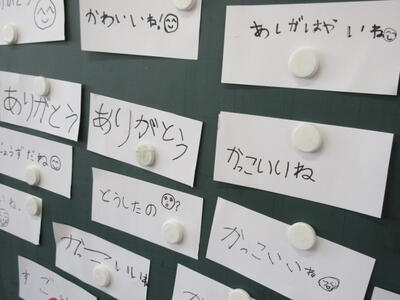 かわいいね!
あしがはやいね
ありがとう
ありがとう
かっこいいね
じょうずだね
どうしたの?
かっこいいね
かっこいいね
すご